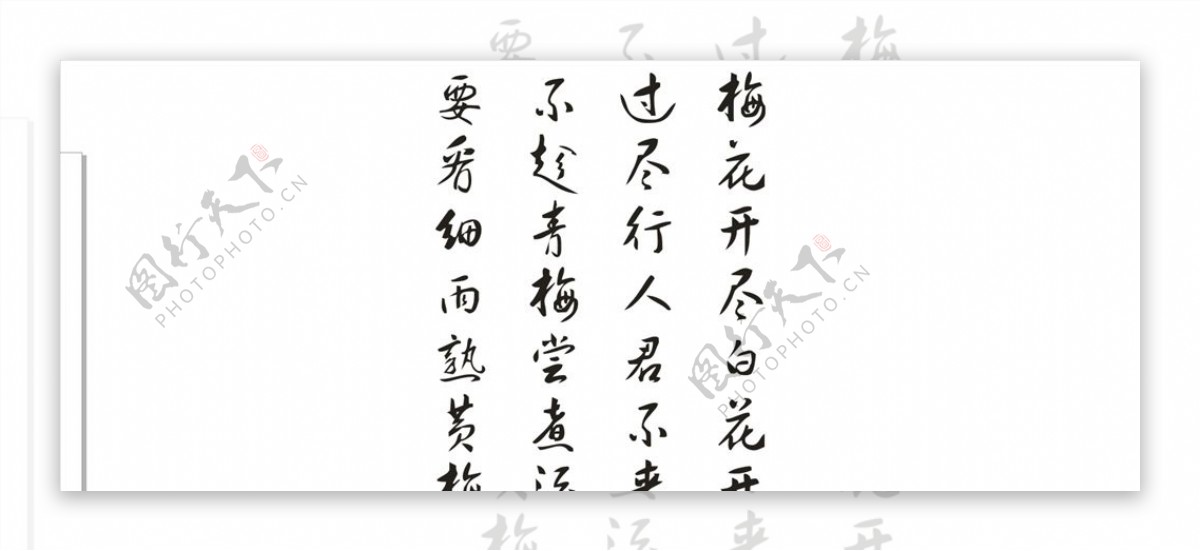 梅花开尽白花开
过尽行人君不来
不趁青梅尝煮酒
要看细雨熟黄梅
图行天下
PHOTOPHOTO.CN
图行天下
PHOTOPHOTO.CN